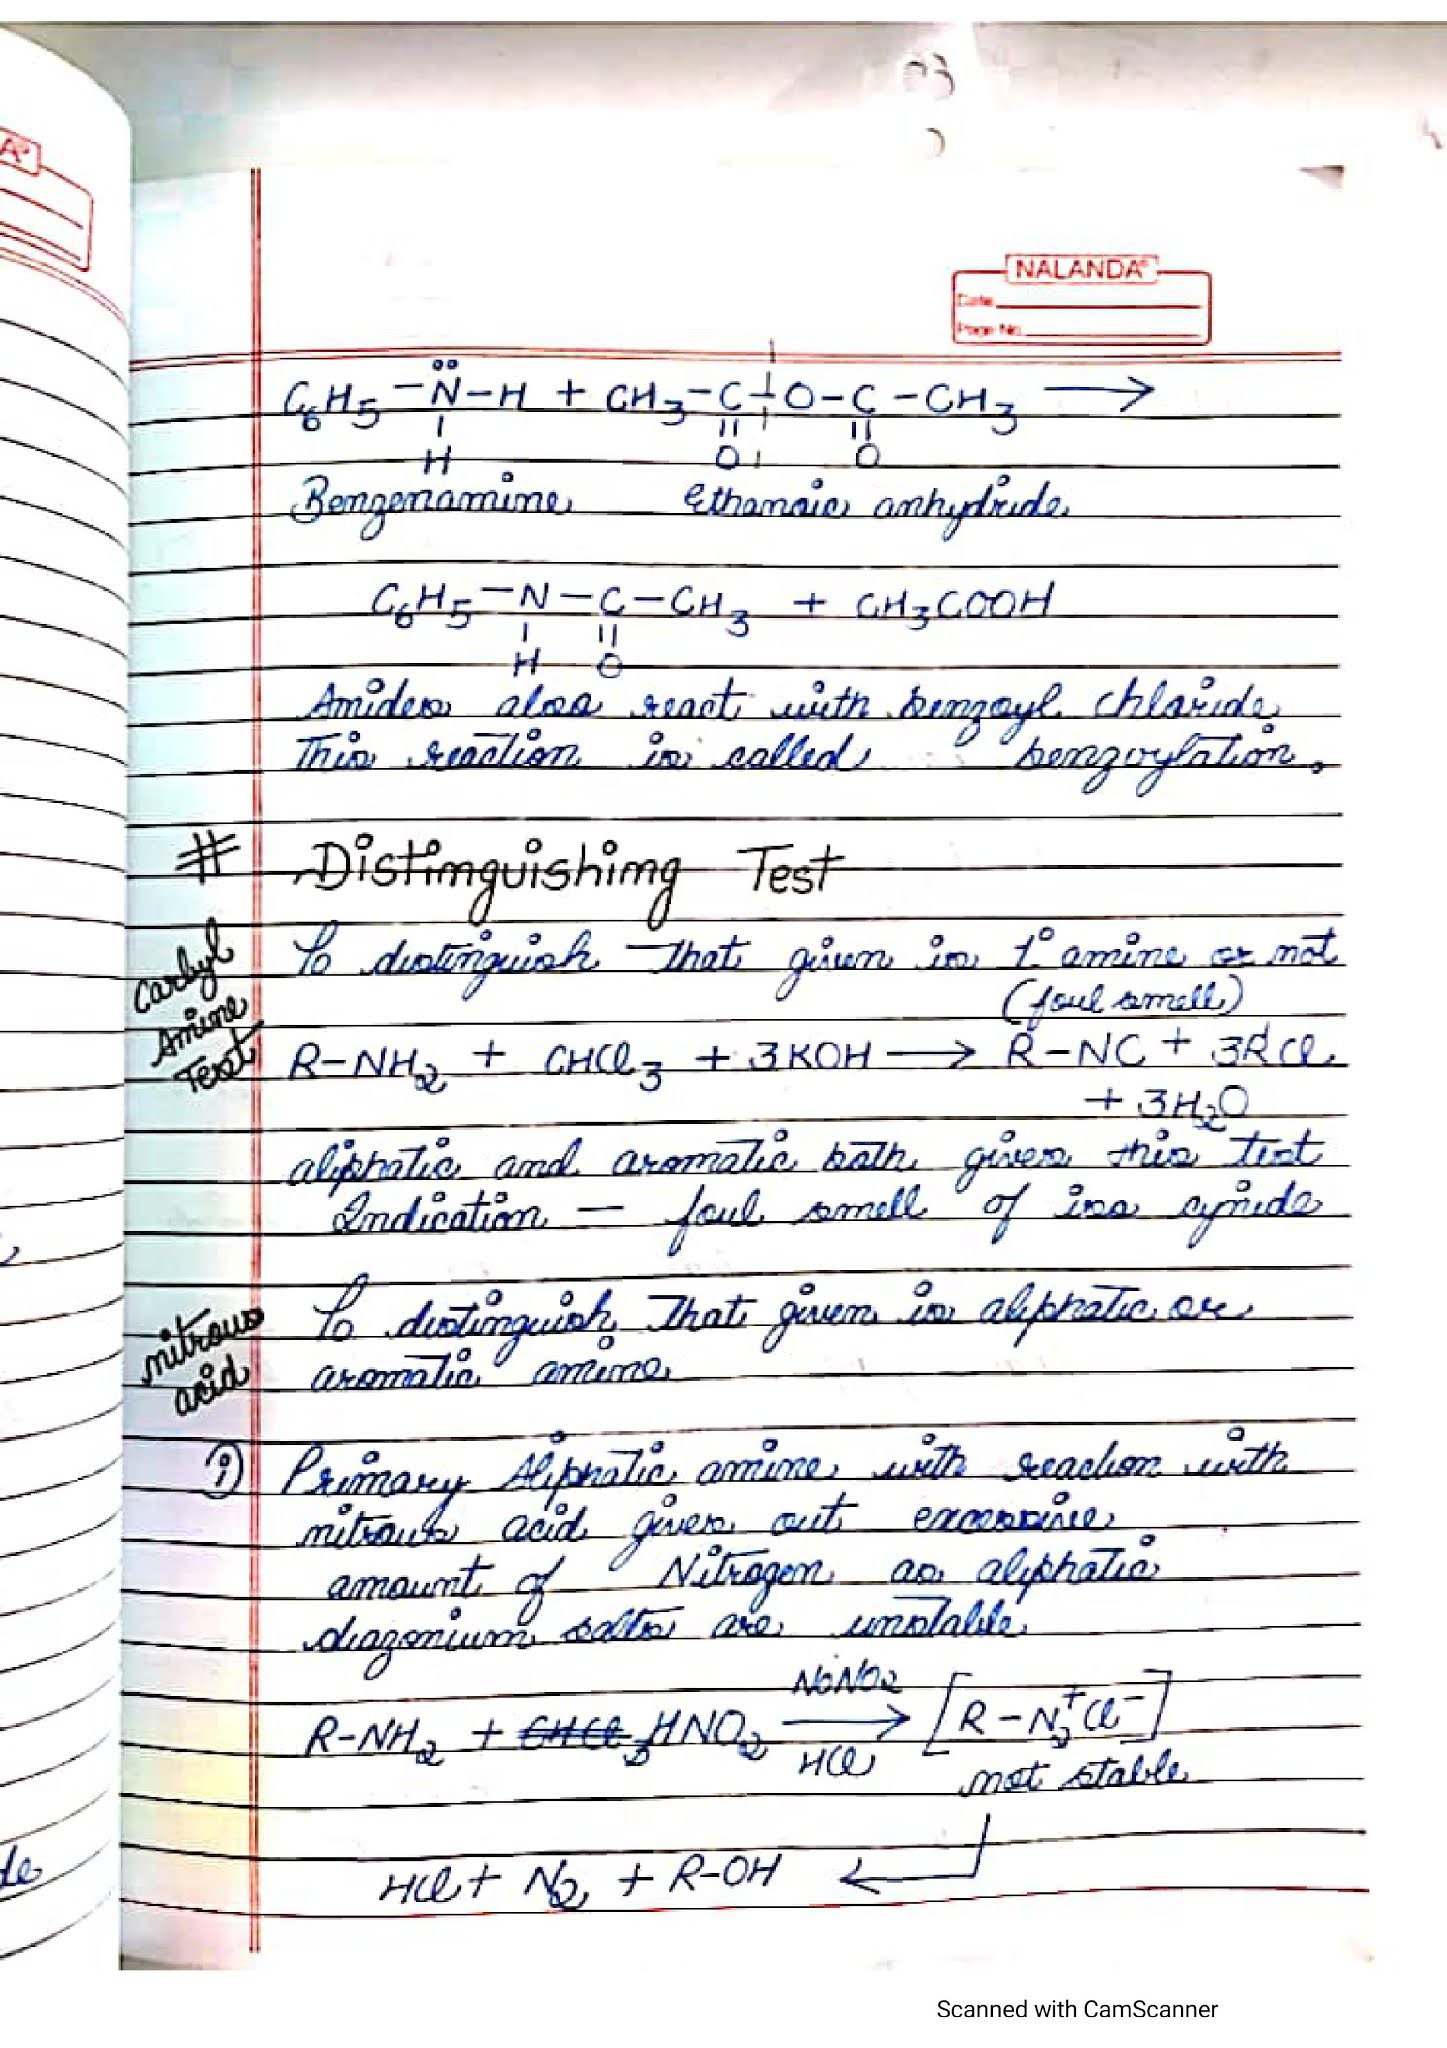 NALANDA
Date
Page No.
C6H5 – N̈ – H + CH3 – C – O – C – CH3 ⟶
| || ||
H O O
Benzenamine Ethanoic anhydride
C6H5 – N – C – CH3 + CH3COOH
| ||
H O
Amides also react with benzoyl chloride
This reaction is called benzoylation.
# Distinguishing Test
To distinguish that given is 1° amine or not
(foul smell)
Carbyl Amine Test
R–NH2 + CHCl3 + 3KOH ⟶ R–NC + 3KCl
+ 3H2O
aliphatic and aromatic both gives this test
Indication – foul smell of iso cynide
nitrous acid
To distinguish that given is aliphatic or
aromatic amine
① Primary Aliphatic amine with reaction with
nitrous acid gives out excessive
amount of Nitrogen as aliphatic
diazonium salts are unstable
NaNO2
R–NH2 + HNO2 ⟶ [R–N2+Cl–]
HCl
not stable
HCl + N2 + R–OH ⟵
Scanned with CamScanner